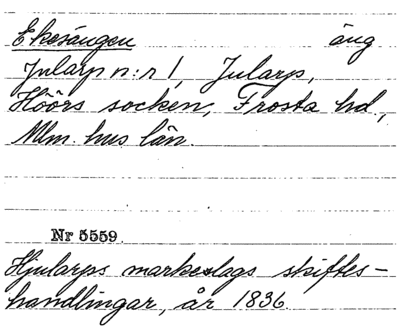 Ekesängen äng
Jularp n:r 1, Jularp,
Höörs socken, Frosta hd.,
Mlm. hus län.
Nr 5559.
Hjularps markeslags skiftes-
handlingar, år 1836.